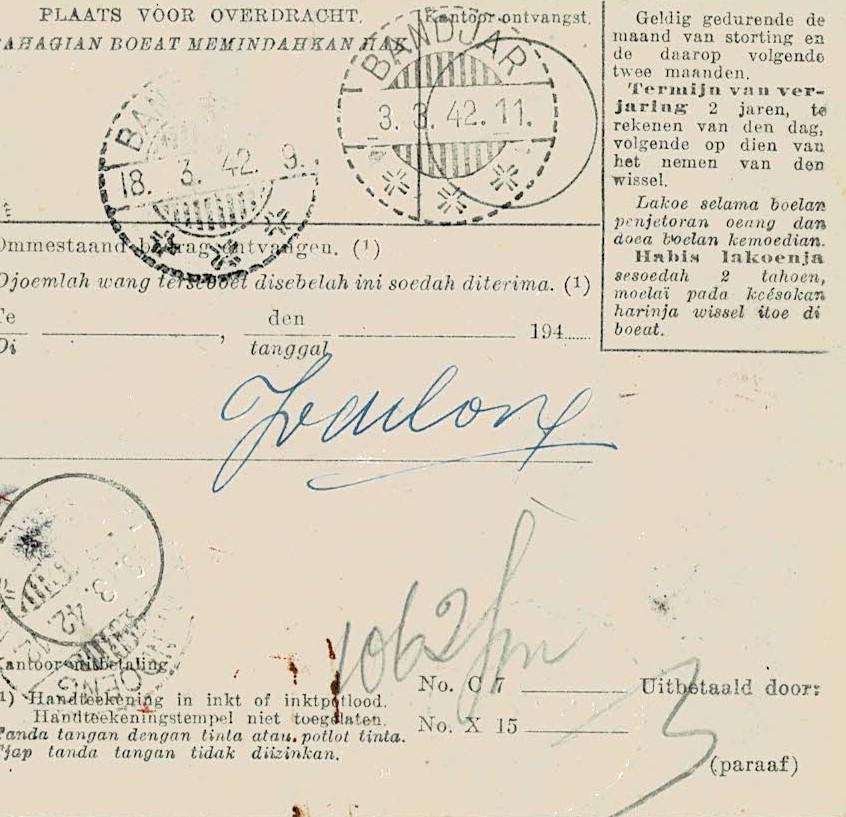 PLAATS VOOR OVERDRACHT.
BAHAGIAN BOEAT MEMINDAHKAN HAK
Kantoor ontvangst.
BANDJAR
3. 3. 42. 11.
18. 3. 42 9.
Geldig gedurende de
maand van storting en
de daarop volgende
twee maanden.
Termijn van ver-
jaring 2 jaren, te
rekenen van den dag,
volgende op dien van
het nemen van den
wissel.
Lakoe selama boelan
penjetoran oeang dan
doea boelan kemoedian.
Habis lakoenja
sesoedah 2 tahoen,
moelaï pada keésokan
harinja wissel itoe di
boeat.
Ommestaand bedrag ontvangen. (1)
Djoemlah wang terseboet disebelah ini soedah diterima. (1)
Te , den 194
Di tanggal
3. 3. 42. 12.
Kantoor uitbetaling
1062
1) Handteekening in inkt of inktpotlood.
Handteekeningstempel niet toegelaten.
Tanda tangan dengan tinta atau potlot tinta.
Tjap tanda tangan tidak diizinkan.
No. C 7 Uitbetaald door:
No. X 15
(paraaf)